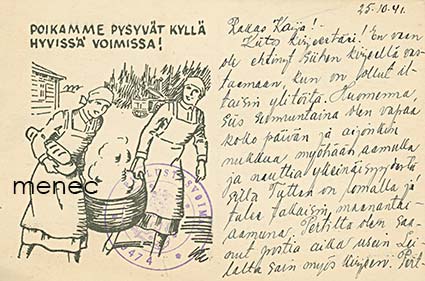 POIKAMME PYSYVÄT KYLLÄ
HYVISSÄ VOIMISSA!
menec
25.10.41.
Rakas Kaija! -
Kiitos kirjeestäsi! En vaan
ole ehtinyt siihen kirjeellä vas-
taamaan, kun on ollut il-
taisin ylitöitä. Huomenna
siis sunnuntaina olen vapaa
koko päivän ja aijonkin
nukkua myöhään aamulla
ja nauttia yksinäisyydestä
sillä on lomalla ja
tulee takaisin maanantai-
aamuna. Pertiltä olen saa-
nut postia aika usein
sain myös kirjeen. Pert-